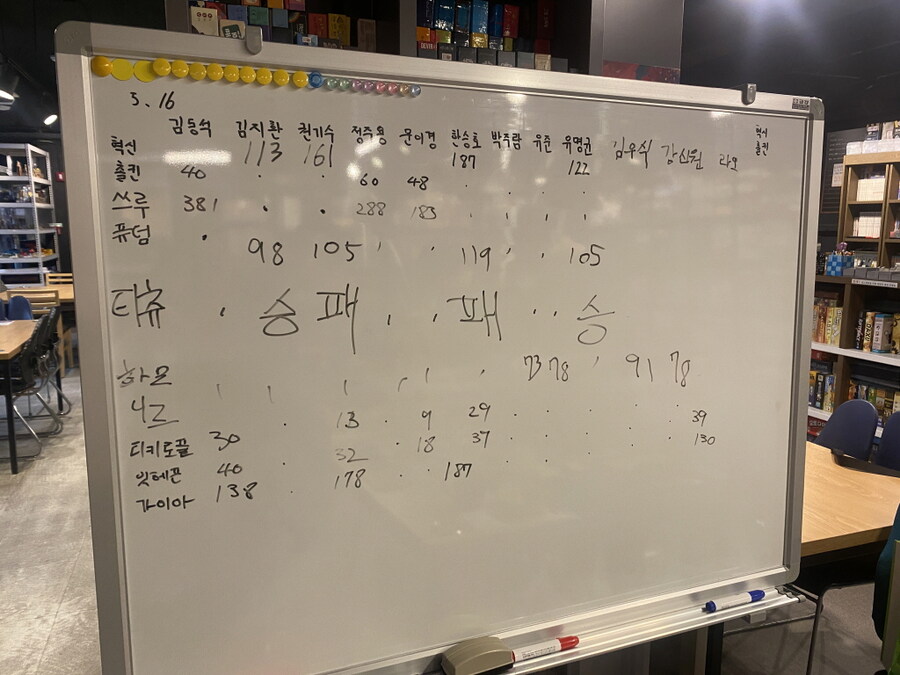 5. 16
김동석 김지환 권기수 정주용 문이경 한승호 박주람 유준 유명균 임우식 강신원 라오 혁시
혁신 113 161 187 122 촐킨
촐킨 40 · · 60 48 · · · ·
쓰루 381 · · 288 183 · · · ·
퓨덤 · 98 105 · · 119 · · 105
티츄 · 승 패 · · 패 · · 승
하모 · · · · · · 73 78 · 91 78
니즈 · 13 · 9 29 · · · · 39
티키토플 30 32 · 18 37 · · · · 130
잇테른 40 · 178 · · 187
가이아 138 ·